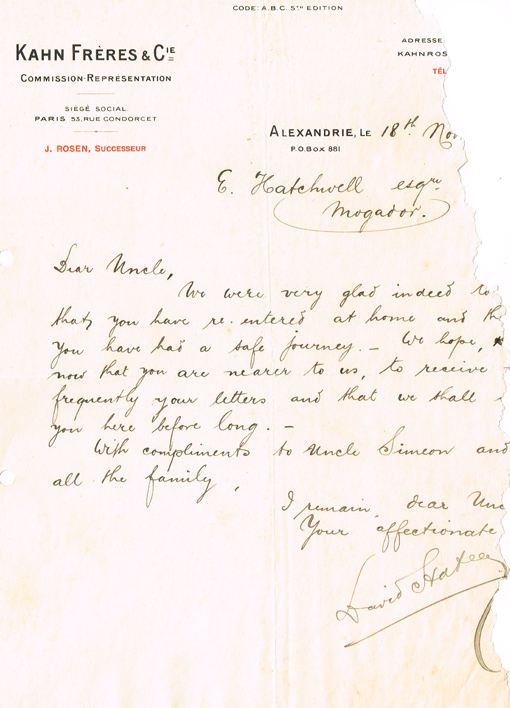 CODE: A.B.C. 5TH EDITION
KAHN FRÈRES & CIE
COMMISSION-REPRÉSENTATION
SIEGÉ SOCIAL
PARIS 53, RUE CONDORCET
J. ROSEN, SUCCESSEUR
ADRESSE
KAHNROS
TÉL
ALEXANDRIE, LE 18th Nov
P.O. BOX 881
E. Hatchwell esqre
Mogador.
Dear Uncle,
We were very glad indeed to
that you have re-entered at home and th
you have had a safe journey. — We hope,
now that you are nearer to us, to receive
frequently your letters and that we shall
you here before long. —
With compliments to Uncle Simeon and
all the family,
I remain, dear Unc
Your affectionate
David